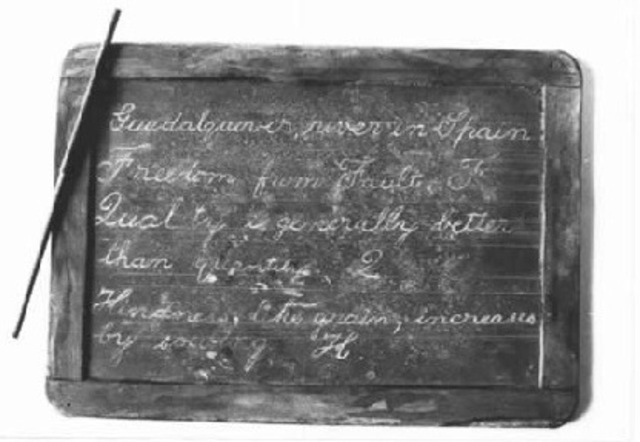 Guadalquivir, river in Spain.
Freedom from Fault. F
Quality is generally better
than quantity. Q
Kindness, like grain, increases
by sowing K